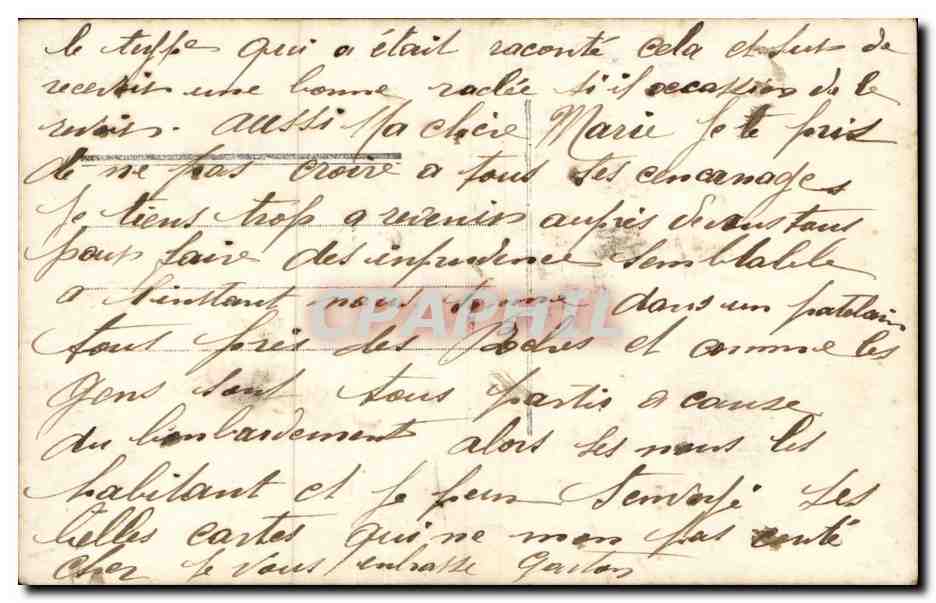 le tuffe qui a était raconté cela et sur de
recevoir une bonne raclée si il occassion de le
revoir. aussi Ma chère Marie Je te pris
de ne pas croire a tous ses cencanages
Je tiens trop a revenir auprès de vous tous
pour faire des imprudence semblable
a l'instant nous somme dans un patelain
tous près des Boches et comme les
gens sont tous partis a cause
du bombardement alors ses nous les
habitant et je peu t'envoyé ses
belles cartes qui ne mon pas couté
cher Je vous embrasse Gaston
CPAPHIL